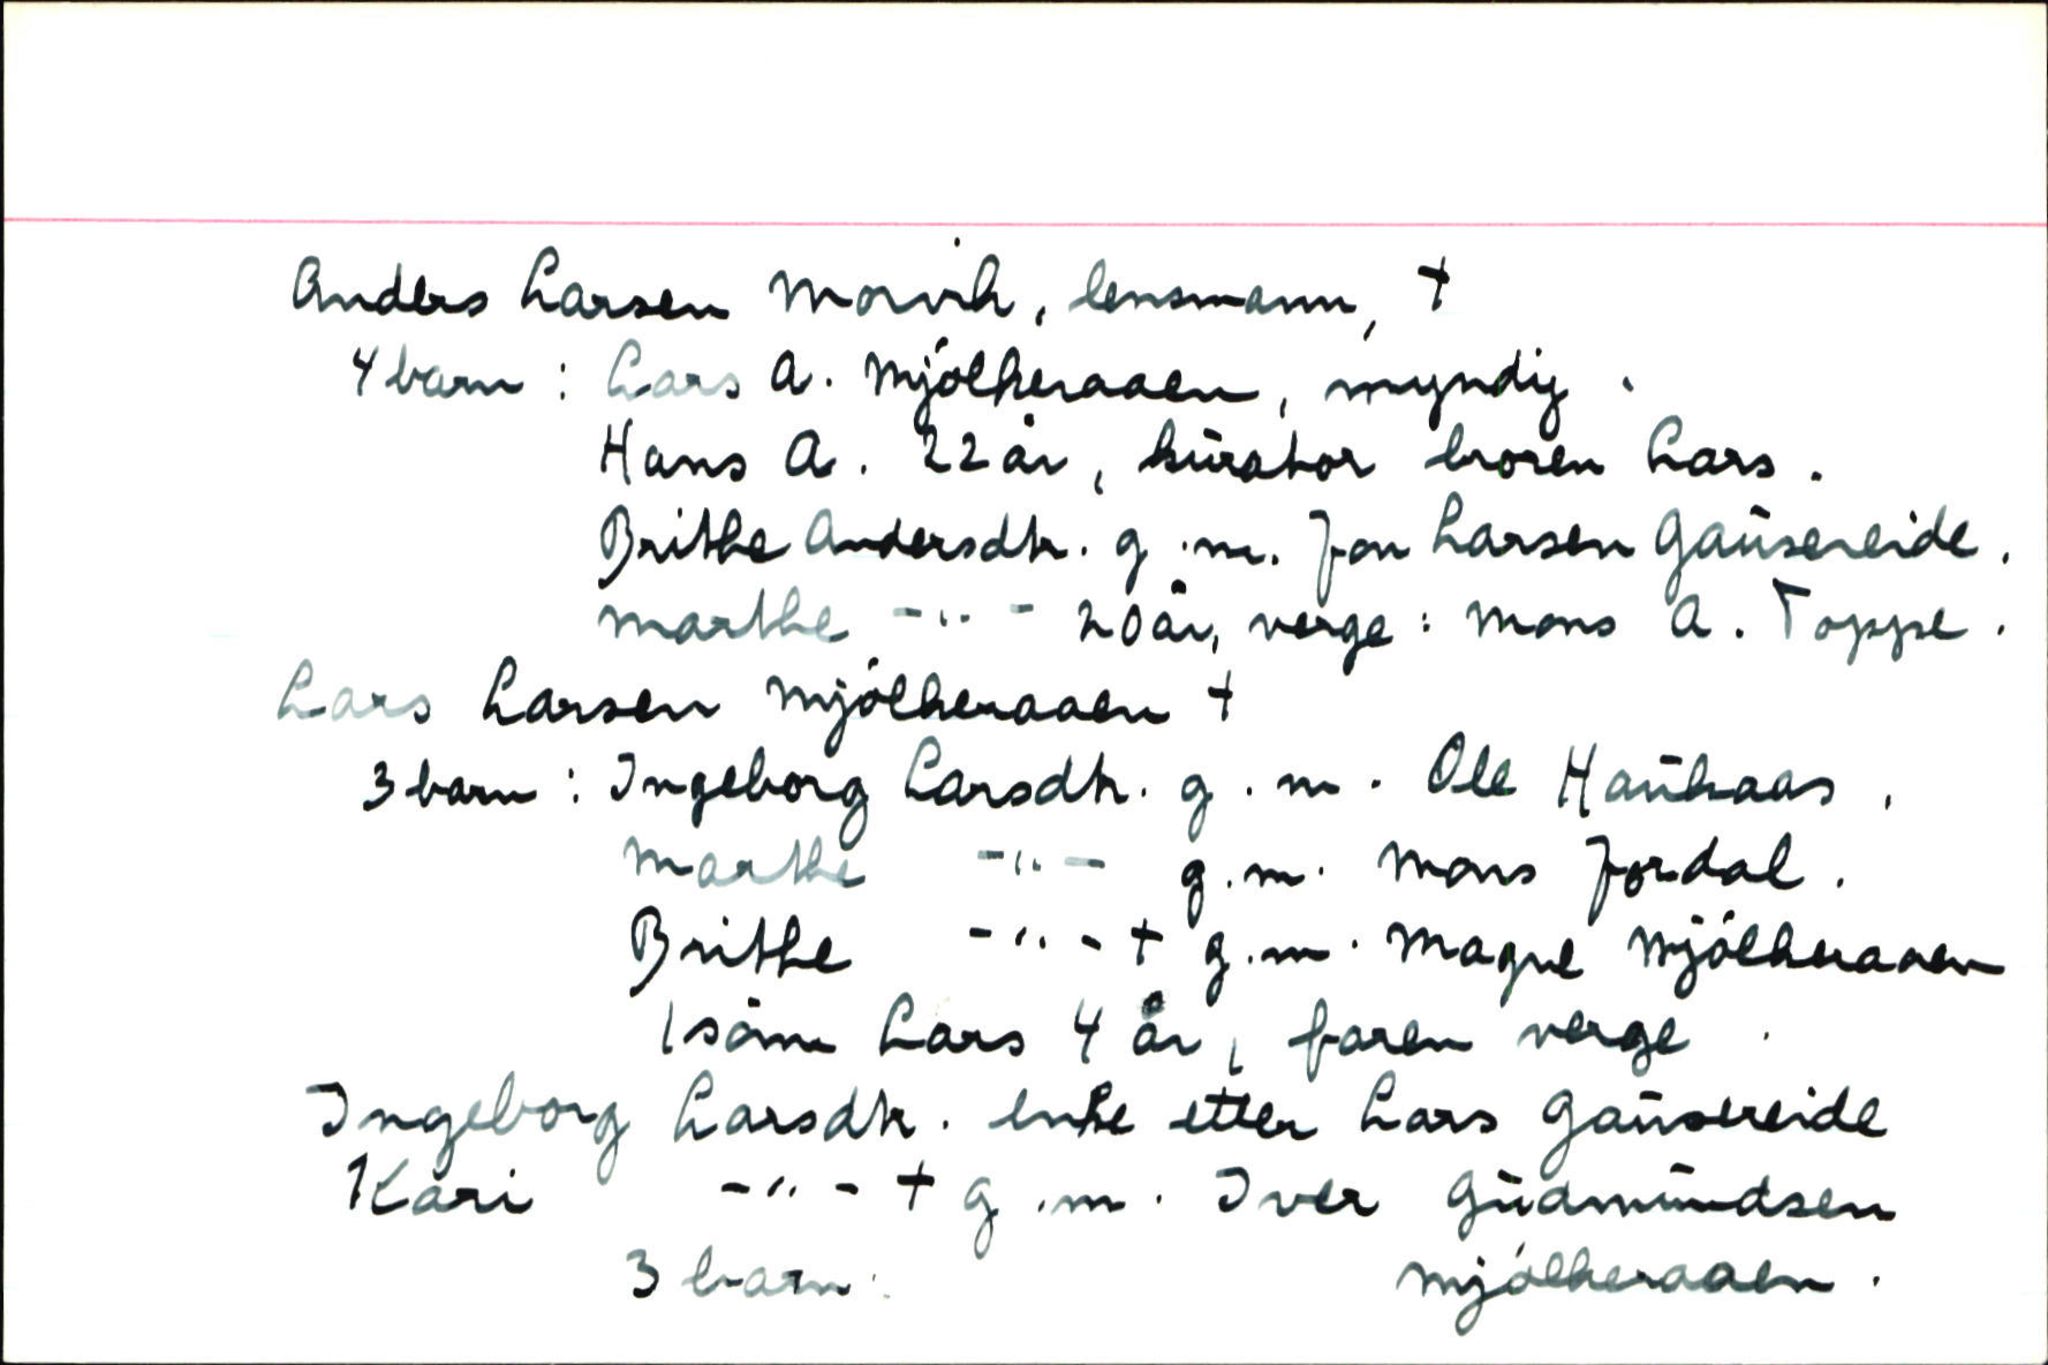 Anders Larsen Morvik, lensmann, †
4 barn : Lars A. Mjölkeraaen, myndig.
Hans A. 22 år, kūrator broren Lars.
Brithe Andersdtr. g.m. Jon Larsen Gaūsereide.
Marthe -"- 20 år, verge : Mons A. Toppe.
Lars Larsen Mjölkeraaen †
3 barn : Ingeborg Larsdtr. g.m. Ole Haūkaas.
Marthe -"- g.m. Mons Jordal.
Brithe -"- † g.m. Magne Mjölkeraaen
1 sönn Lars 4 år, faren verge.
Ingeborg Larsdtr. enke etter Lars Gaūsereide
Kari -"- † g.m. Iver Gūdmūndsen
3 barn. Mjölkeraaen.